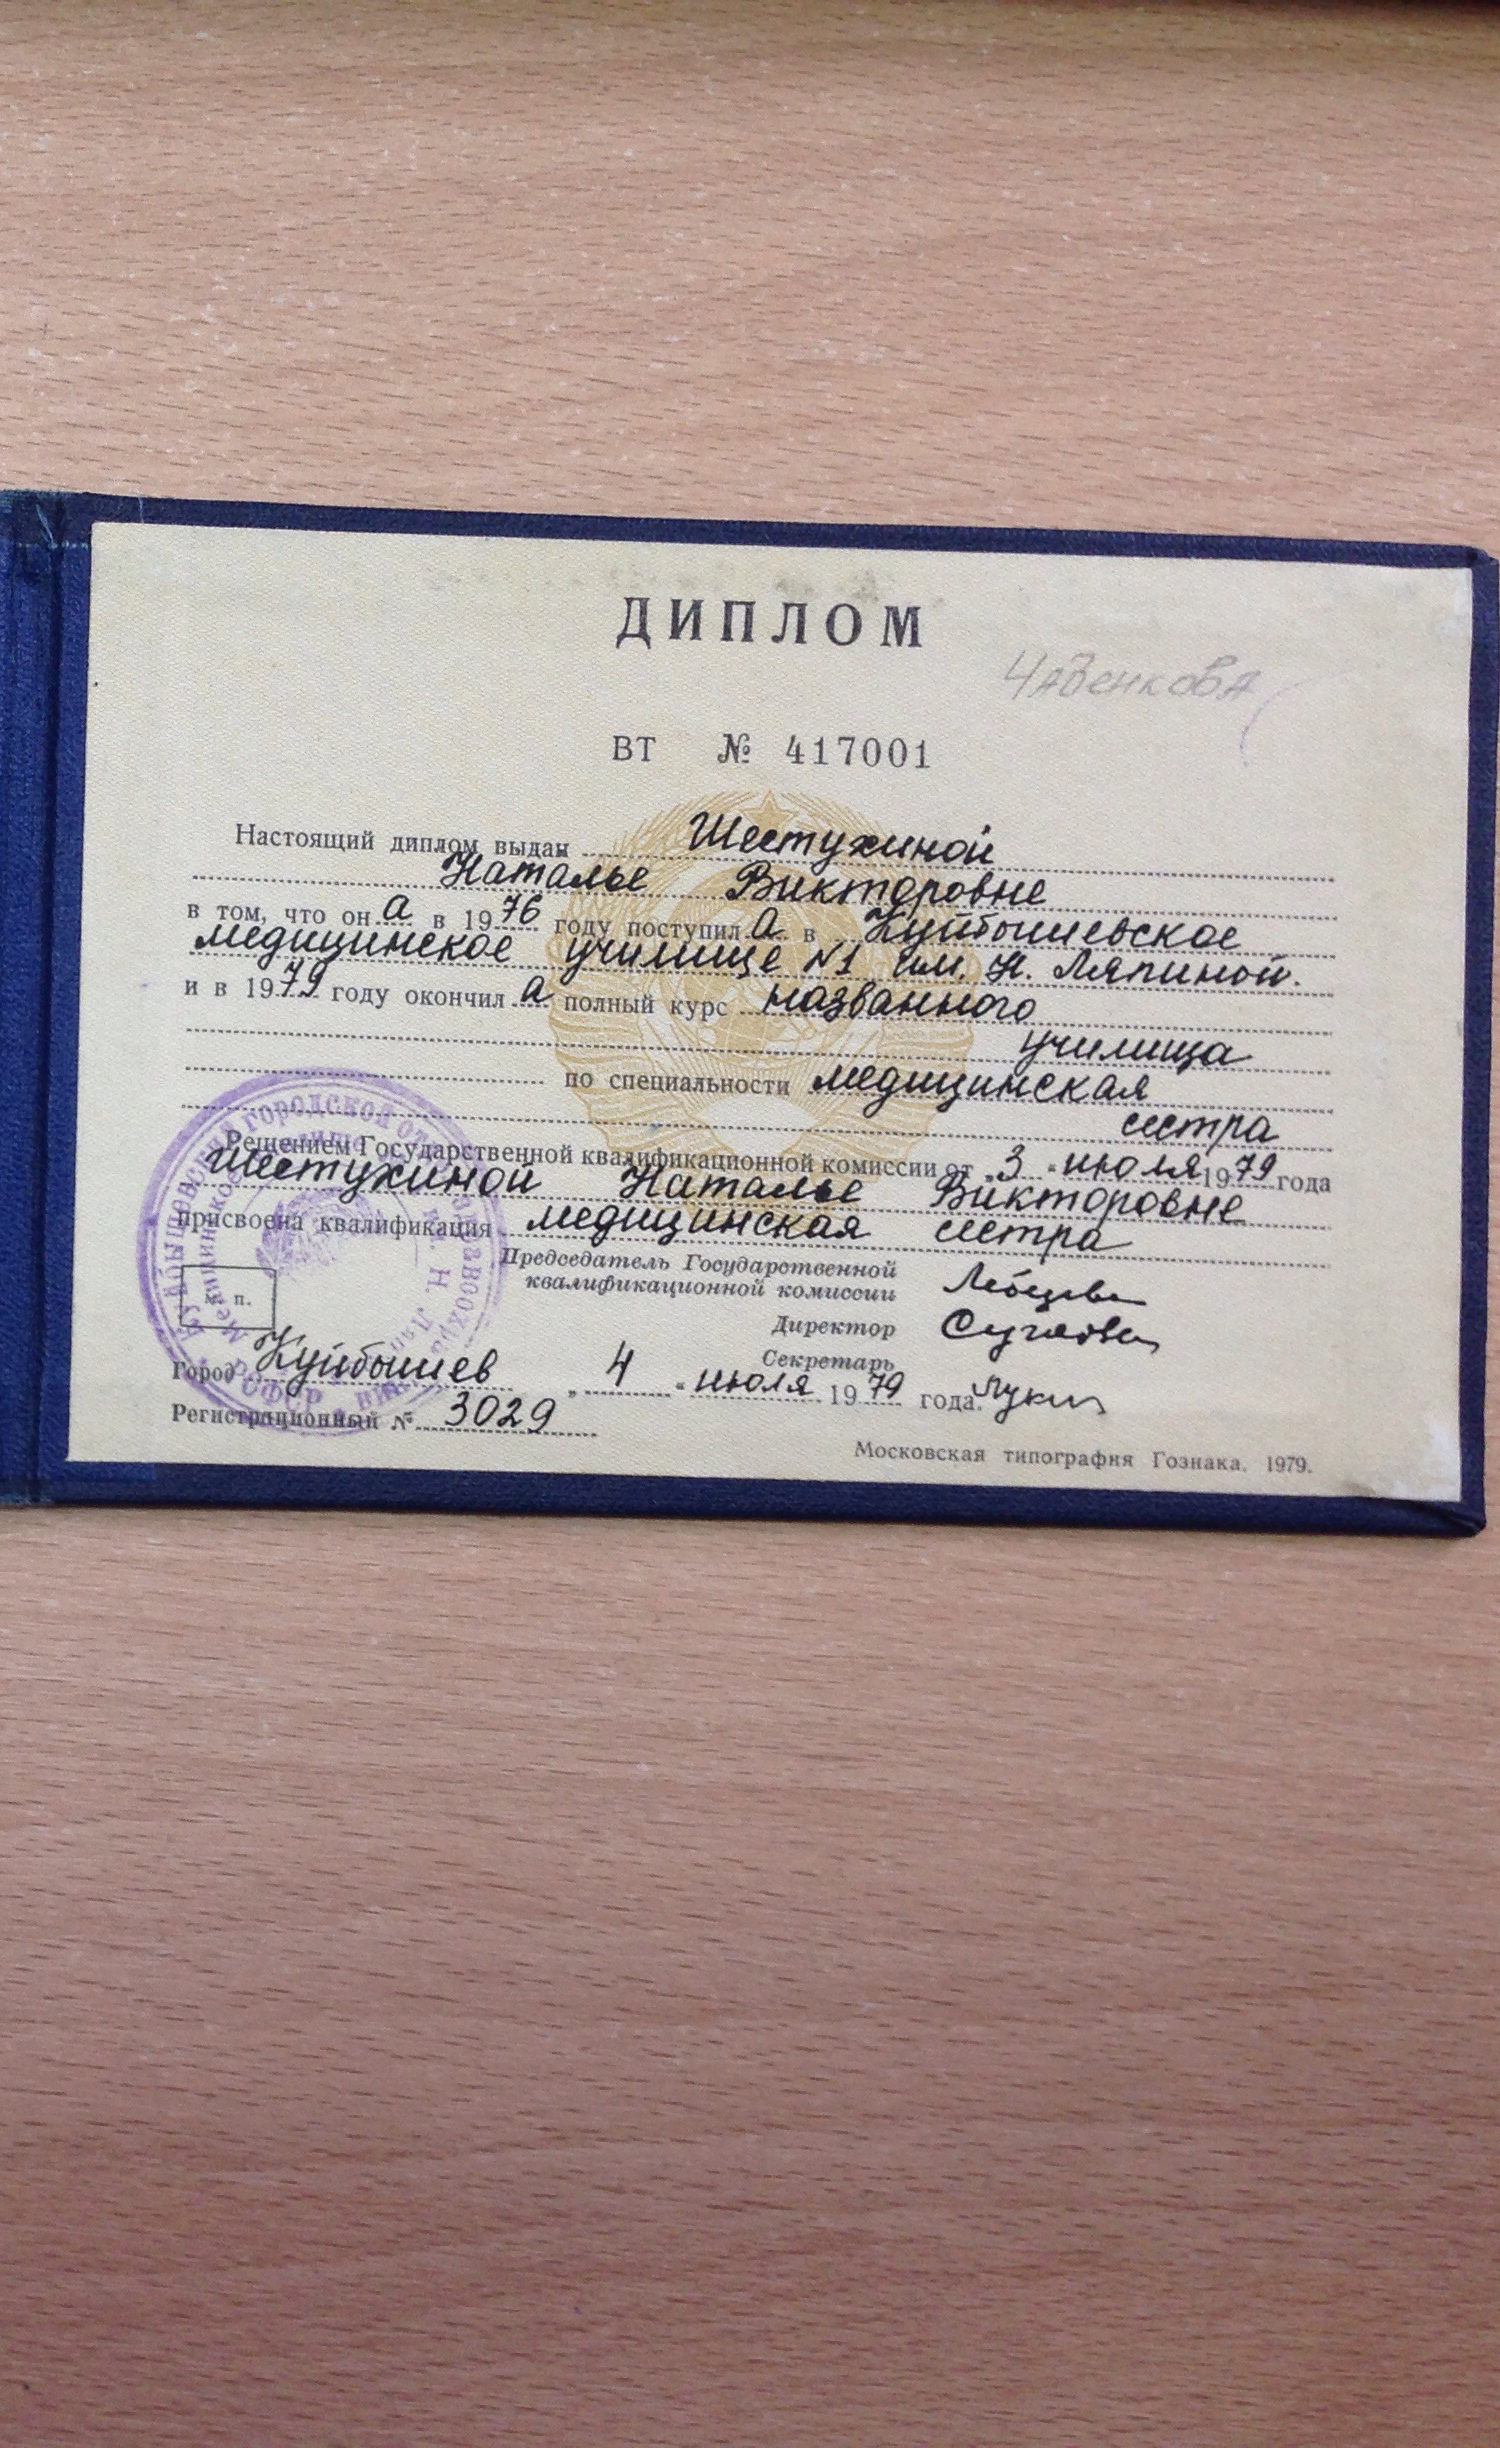 ДИПЛОМ
Чавенкова
ВТ № 417001
Настоящий диплом выдан Шестухиной
Наталье Викторовне
в том, что он а в 1976 году поступил а в Куйбышевское
медицинское училище №1 им. Н. Ляпиной.
и в 1979 году окончил а полный курс названного
училища
по специальности медицинская
сестра
Решением Государственной квалификационной комиссии от „3“ июля 1979 года
Шестухиной Наталье Викторовне
присвоена квалификация медицинская сестра
Председатель Государственной
квалификационной комиссии
Директор
Секретарь
Город Куйбышев „4“ июля 1979 года.
Регистрационный № 3029
Московская типография Гознака. 1979.